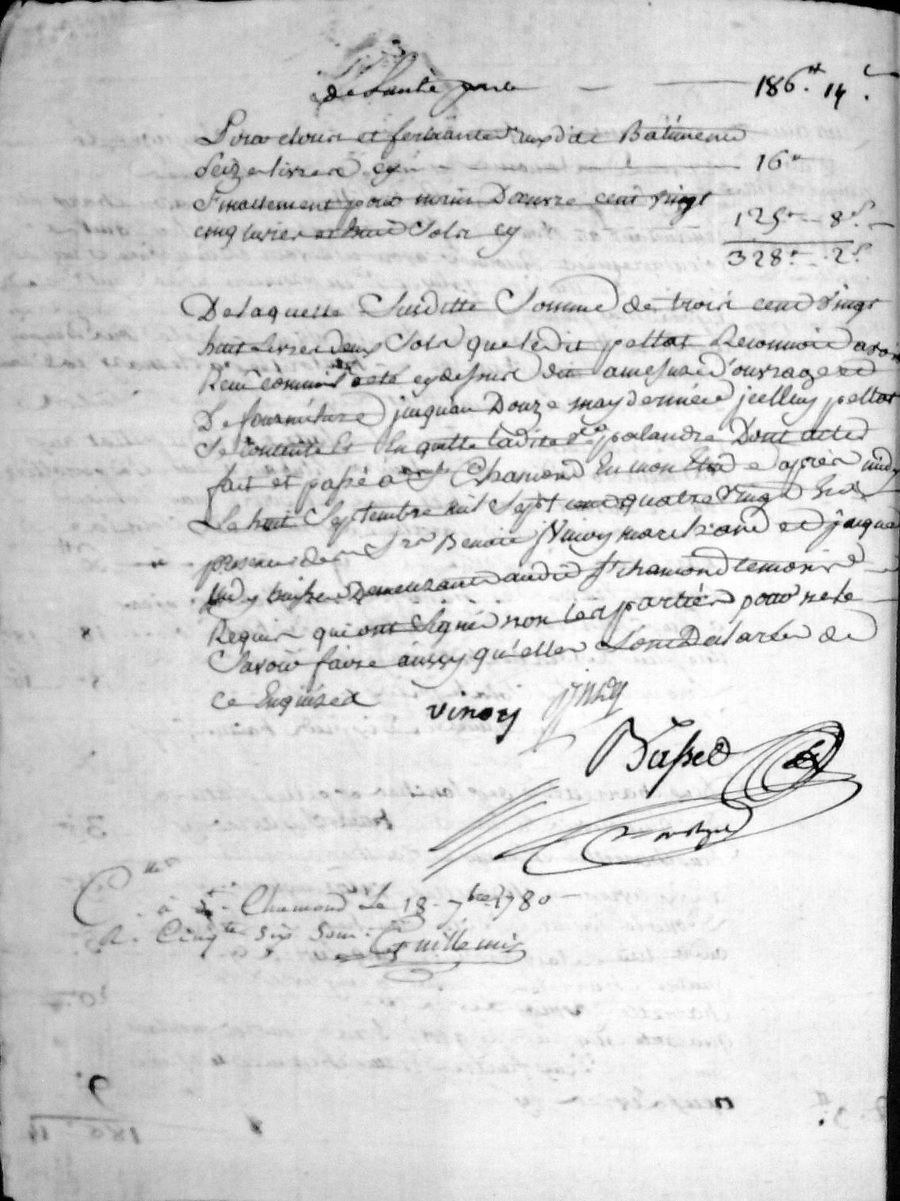 de Lautre part 186# 14s
Pour clouds et ferriantes auxdits Batiments
Seize livres cy 16#
Finallement pour main Dœuvre cent vingt
cinq livres et huit Sols cy 125# 8s
328# 2s
De laquelle Susditte Somme de trois cent vingt
huit Livres deux Sols que ledit pellat Reconnoit avoir
Reçu comme cydessus dit amesure d'ouvrage et
De fourniture jusquau Douze may dernier jcelluy pellat
Se contente Et En quitte ladite palandre Dont acte
fait et passé a St Chamond En mon Etude apres midy
Le huit Septembre mil Sept cent quatre vingt Es
presences de Srs Benoit Vinoy marchand et jacques
huissier Demeurants audit St chamond temoins
Requis qui ont Signé non les parties pour ne le
Savoir faire aussy qu'elles L'ont Declaré de
ce Enquises
vinoy
Basset
Clle
à St Chamond Le 18 7bre 1780
R. Cinqte six sous Guillemin